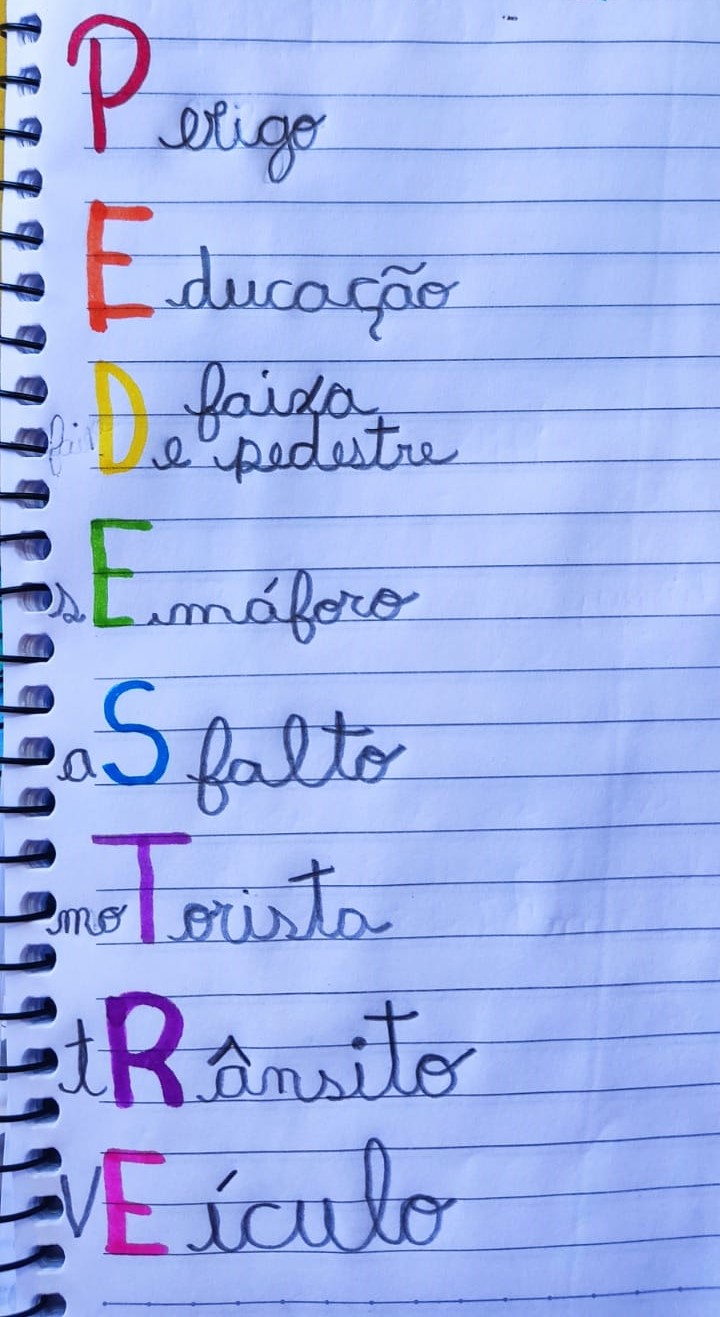 Perigo
Educação
faixa
De pedestre
sEmáforo
aSfalto
moTorista
tRânsito
vEículo